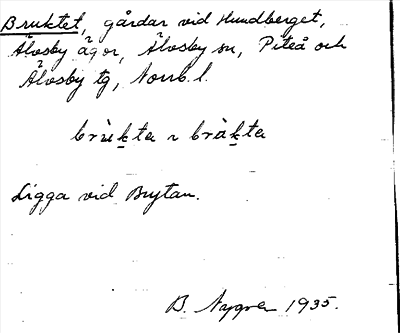 Bruktet, gårdar vid Hundberget,
Älvsby ägor, Älvsby sn, Piteå och
Älvsby tg, Norrb. l.
brùkta ~ bràkta
Ligga vid Brytan.
B. Nygren 1935.